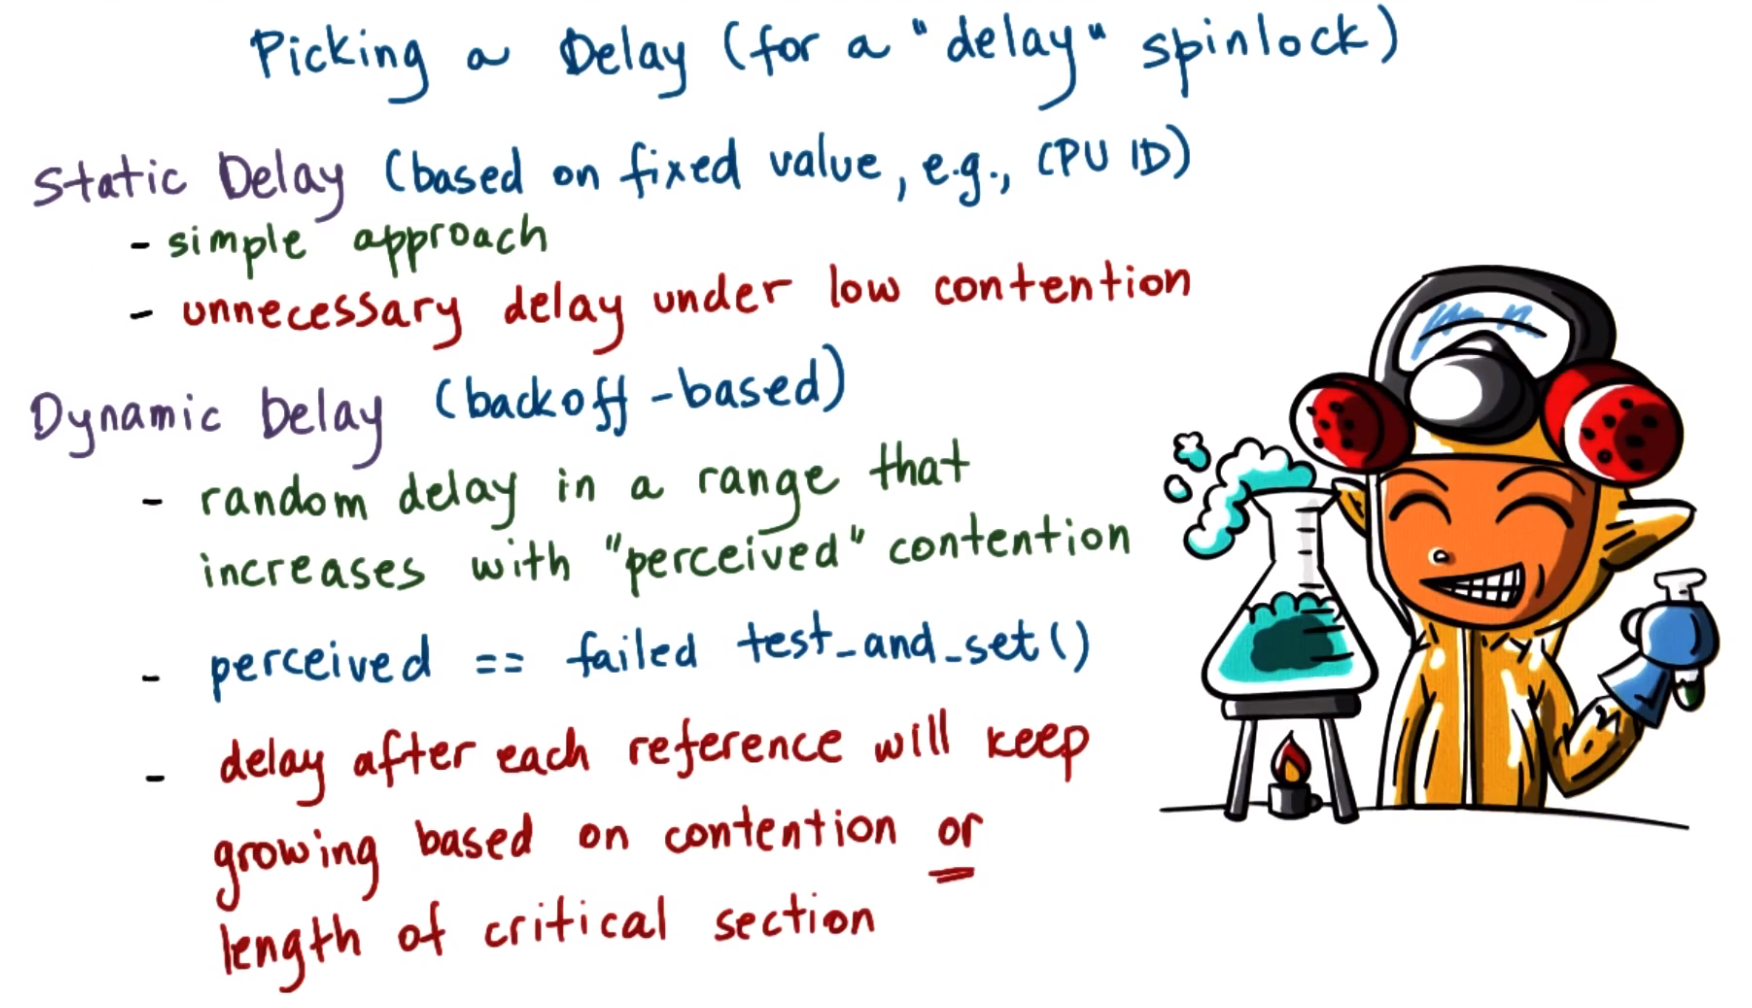 Picking a Delay (for a "delay" spinlock)
Static Delay (based on fixed value, e.g., CPU ID)
- simple approach
- unnecessary delay under low contention
Dynamic Delay (backoff-based)
- random delay in a range that
increases with "perceived" contention
- perceived == failed test_and_set()
- delay after each reference will keep
growing based on contention or
length of critical section